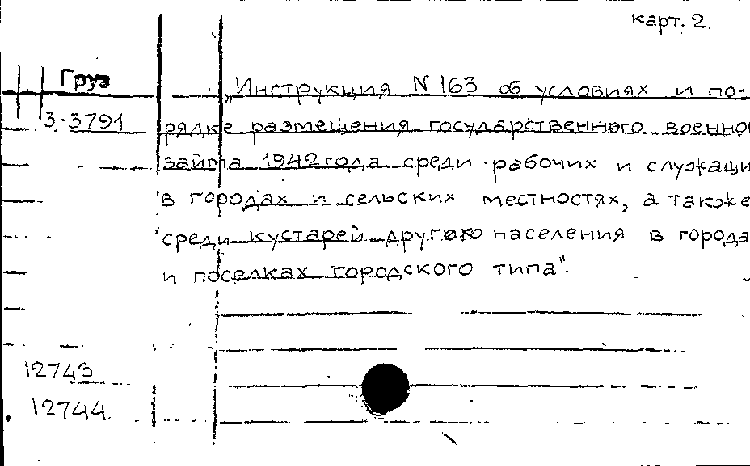 карт. 2.
Груз
3-3791
„Инструкция N 163 об условиях и по-
рядке размещения государственного военно
займа 1942 года среди рабочих и служащи
в городах и сельских местностях, а также
среди кустарей другого населения в города
и поселках городского типа".
12743
12744.